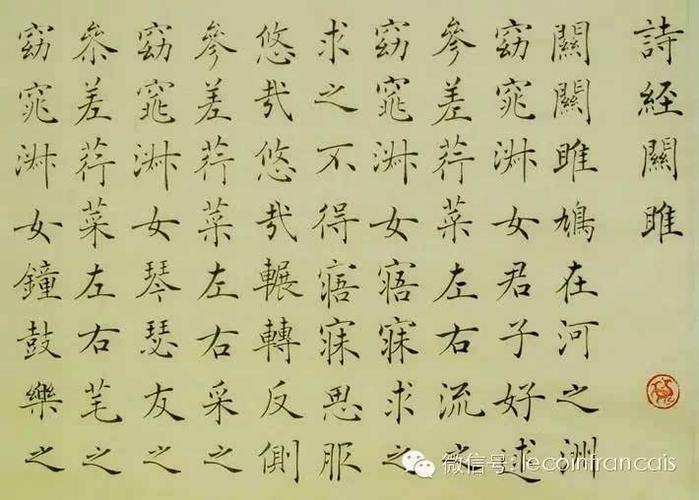 詩經關雎
關關雎鳩在河之洲
窈窕淑女君子好逑
參差荇菜左右流之
窈窕淑女寤寐求之
求之不得寤寐思服
悠哉悠哉輾轉反側
參差荇菜左右采之
窈窕淑女琴瑟友之
參差荇菜左右芼之
窈窕淑女鐘鼓樂之
微信号: lecoinfrancais